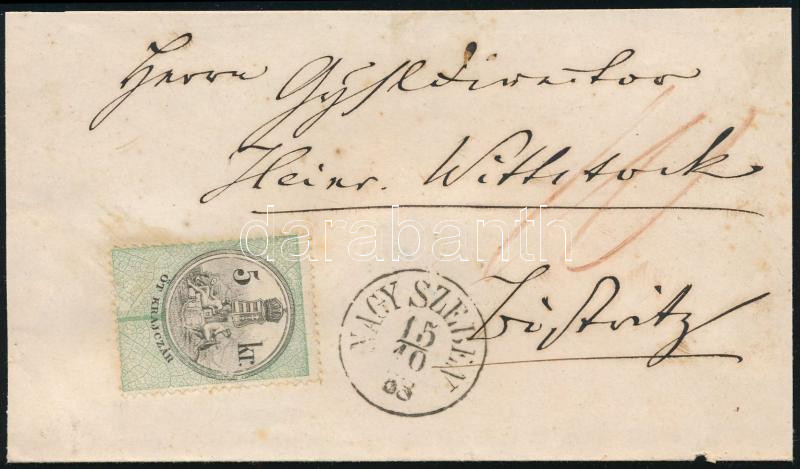 Herrn Gys¸lDirector
Heinr. Wittstock
Bistritz
5 kr.
ÖT KRAJCZÁR
NAGY SZEBEN
15
10
68
darabanth